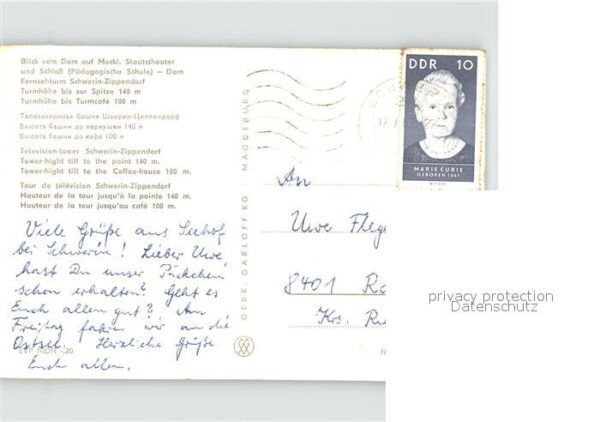 Blick vom Dom auf Meckl. Staatstheater
und Schloß (Pädagogische Schule) - Dom
Fernsehturm Schwerin-Zippendorf
Turmhöhe bis zur Spitze 140 m
Turmhöhe bis Turmcafé 100 m
Телевизионная башня Шверин-Циппендорф
Высота башни до верхушки 140 м
Высота башни до кафе 100 м
Television-tower Schwerin-Zippendorf
Tower-hight till to the point 140 m.
Tower-hight till to the Coffee-house 100 m.
Tour de télévision Schwerin-Zippendorf
Hauteur de la tour jusqu'à la pointe 140 m.
Hauteur de la tour jusqu'au café 100 m.
Viele Grüße aus Seehof
bei Schwerin! Lieber Uwe,
hast Du unser Päckchen
schon erhalten? Geht es
Euch allen gut? Am
Freitag fahren wir an die
Ostsee. Herzliche Grüße
Euch allen.
EVP MDN -,20
GEBR. GARLOFF KG · MAGDEBURG
DDR 10
MARIE CURIE
GEBOREN 1867
An
Uwe Fleg
8401 R
Krs. R
privacy protection
Datenschutz